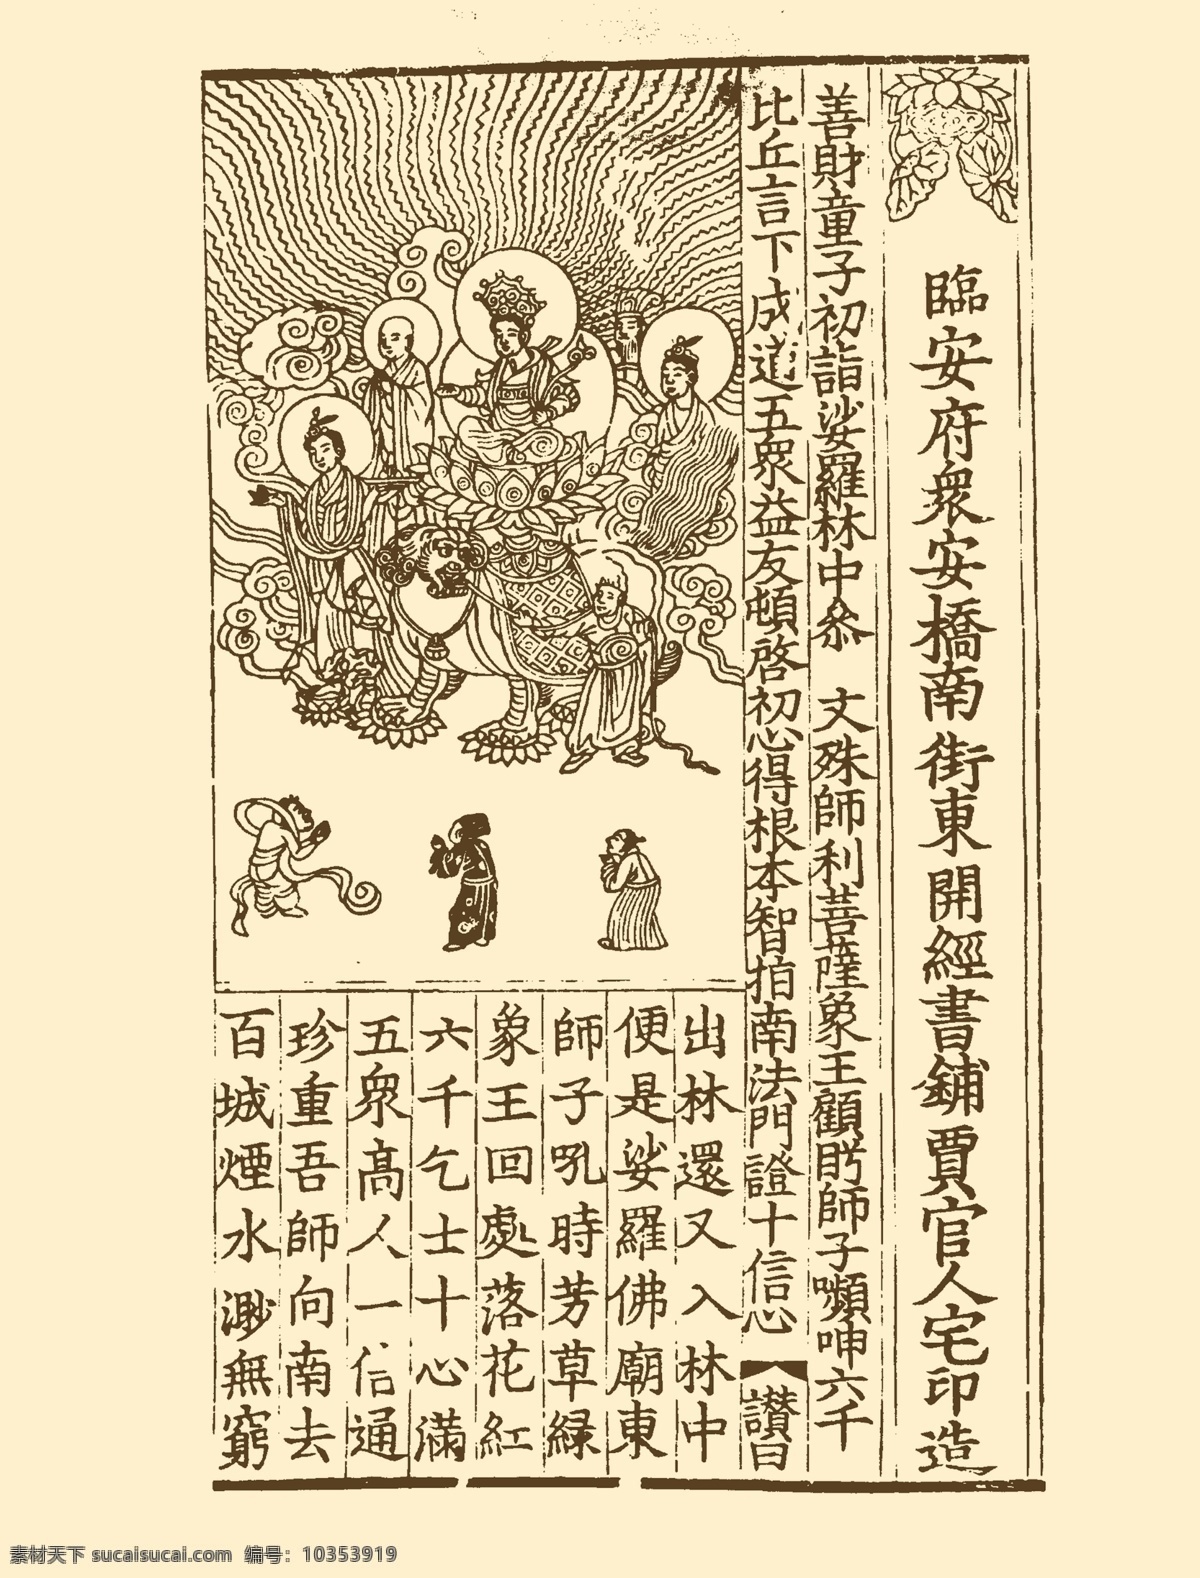 臨安府衆安橋南街東開經書鋪賈官人宅印造
善財童子初詣娑羅林中叅 文殊師利菩薩象王顧眄師子嚬呻六千
比丘言下成道五衆益友頓啓初心得根本智指南法門證十信心 讃曰
出林還又入林中
便是娑羅佛廟東
師子吼時芳草緑
象王回處落花紅
六千乞士十心滿
五衆高人一信通
珍重吾師向南去
百城煙水渺無窮
素材天下 sucaisucai.com 编号：10353919